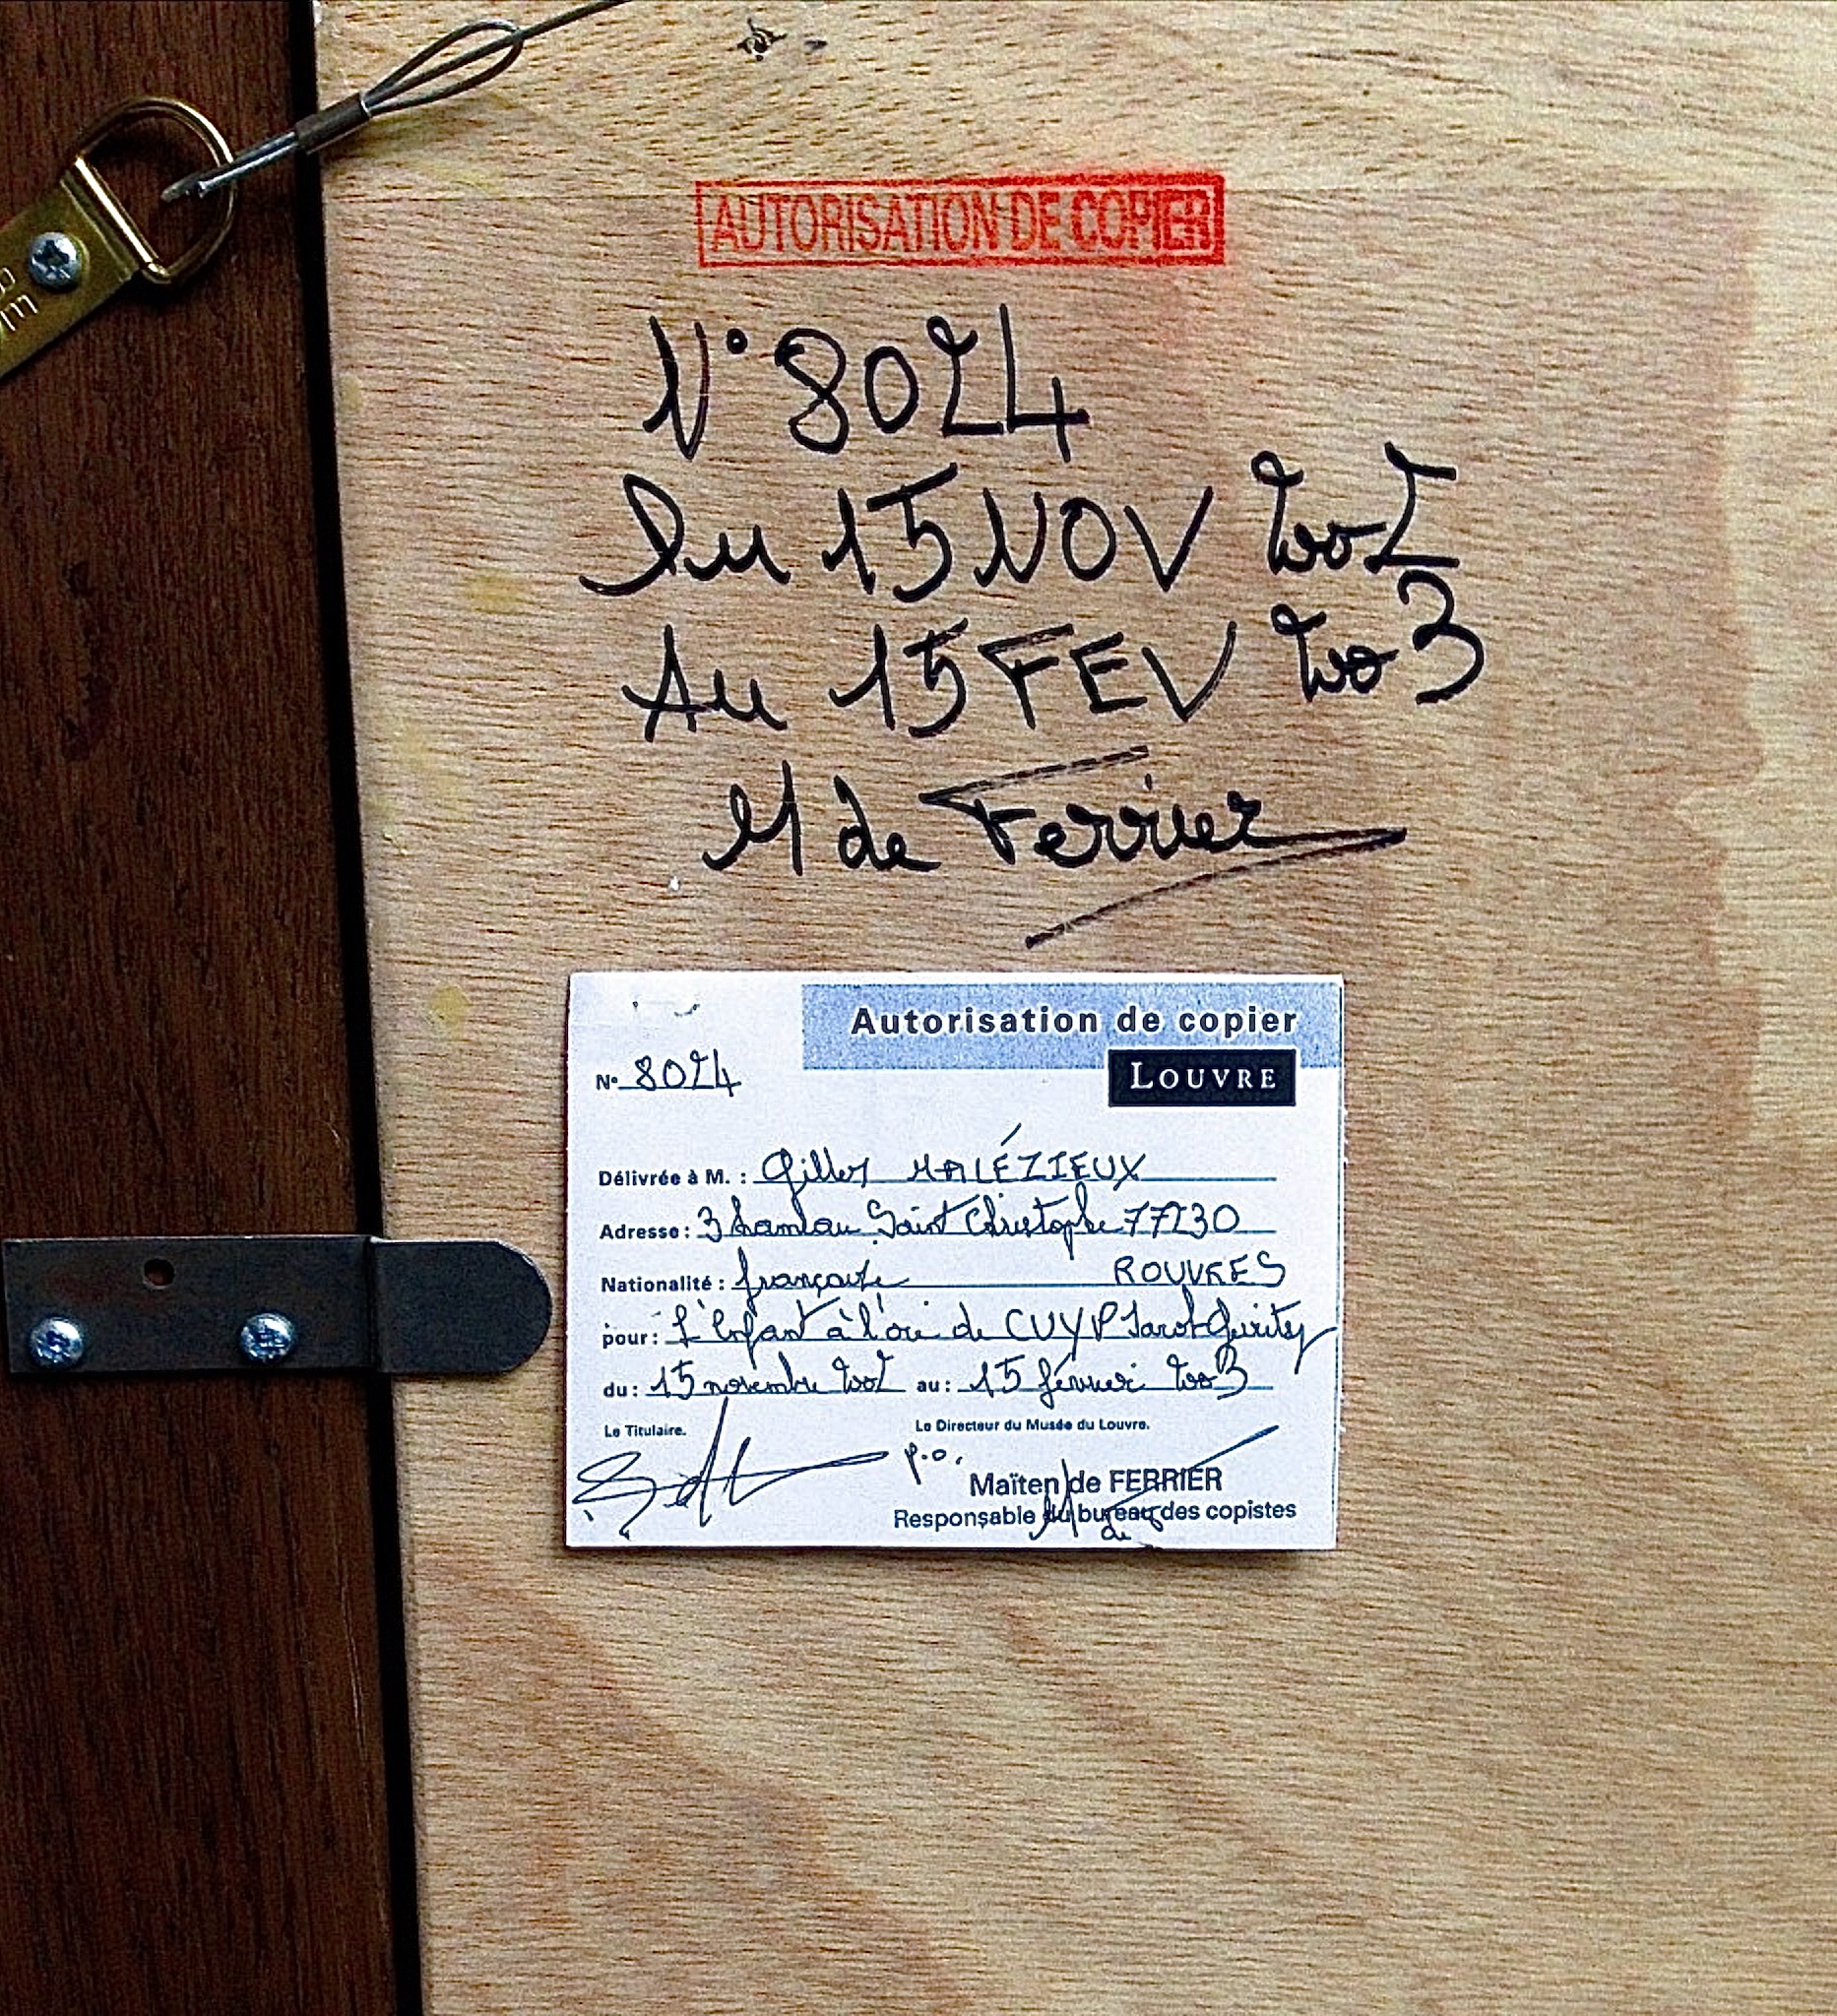 AUTORISATION DE COPIER
N° 8024
Du 15 NOV 2002
Au 15 FEV 2003
M de Ferrier
Autorisation de copier
N° 8024
LOUVRE
Délivrée à M. : Gilles MALÉZIEUX
Adresse : 3 hameau Saint Christophe 77230
Nationalité : française ROUVRES
pour : L'Enfant à l'oie de CUYP Jacob Gerritsz
du : 15 novembre 2002 au : 15 février 2003
Le Titulaire. Le Directeur du Musée du Louvre.
p.o.
Maïten de FERRIER
Responsable du bureau des copistes